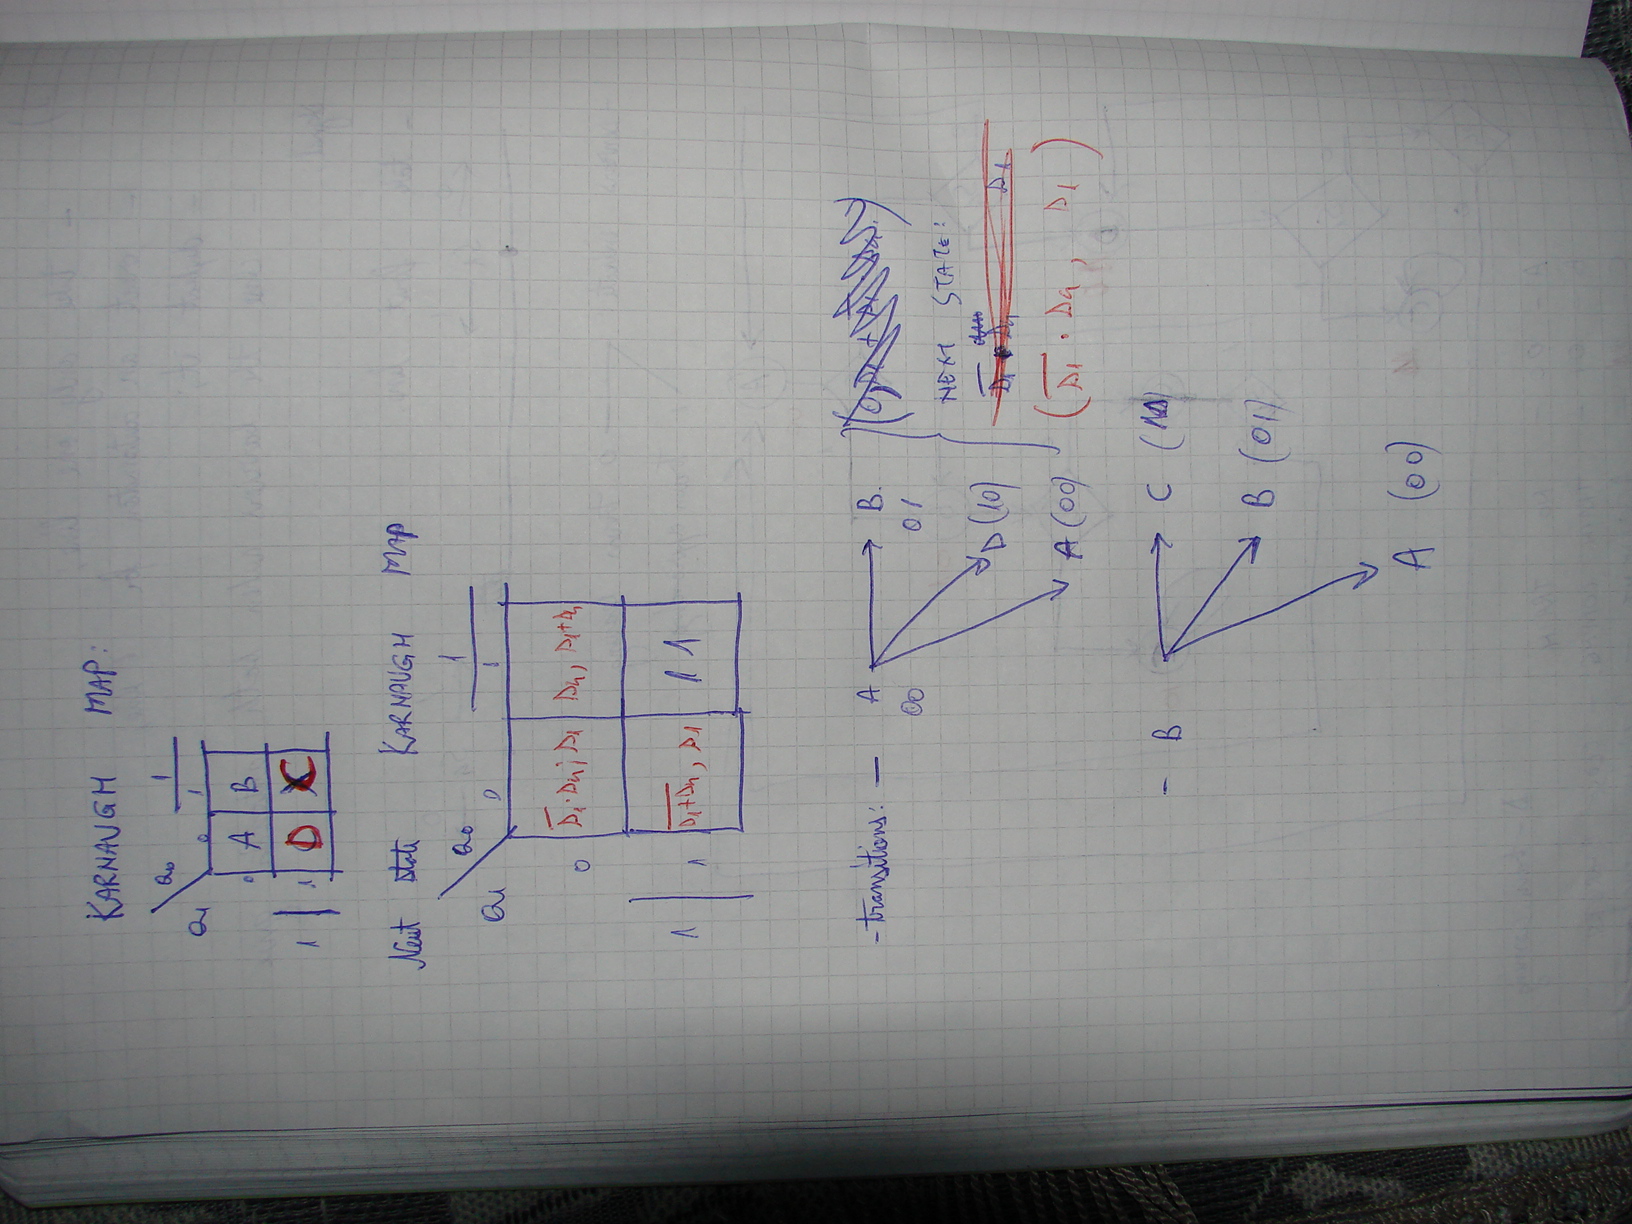 KARNAUGH MAP:
Q0 1
Q1 0 1
0 A B
1 1 D C
Next State KARNAUGH MAP
Q0 1
Q1 0 1
0 D̅1̅·Du, D1 Du, D1+Du
1 1 D̅1̅+̅D̅u̅, D1 11
- transitions: — A → B.
00 01
D (10)
A (00)
NEXT STATE:
(D̅1̅ · Du, D1)
- B → C
B (01)
A (00)